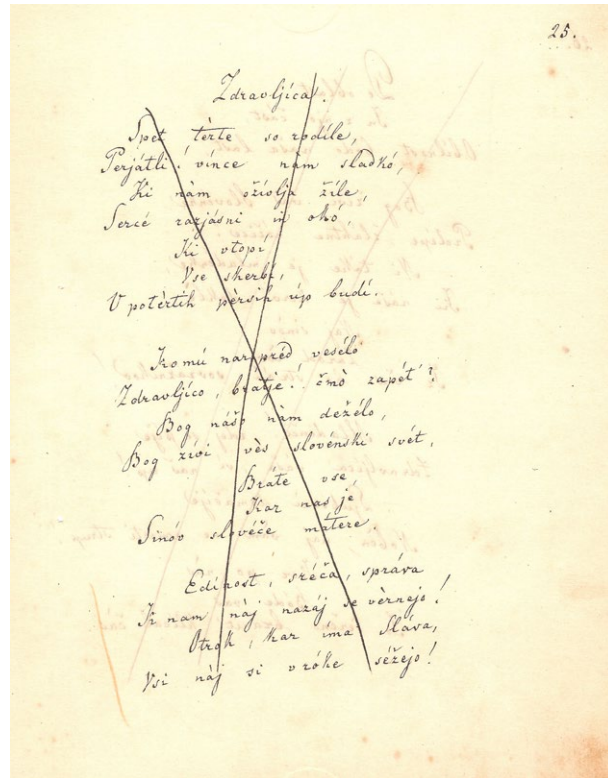 25.
Zdravljíca.
Spet tèrte so rodíle,
Perjátli! vínce nàm sladkó,
Ki nàm ožívlja žíle,
Sercé razjásni in okó,
Ki vtopí
Vse skerbí,
V potèrtih pèrsih úp budí.
Komú narpréd vesélo
Zdravljíco, brátje! čmò zapét'?
Bog nášo nàm deželo,
Bog živi vès slovénski svét,
Bráte vse,
Kar nas je
Sinóv slovéče mátere.
Edínost, sréča, správa
K nam nàj nazáj se vèrnejo!
Otrók, kar ima Sláva,
Vsi nàj si v róke séžejo!